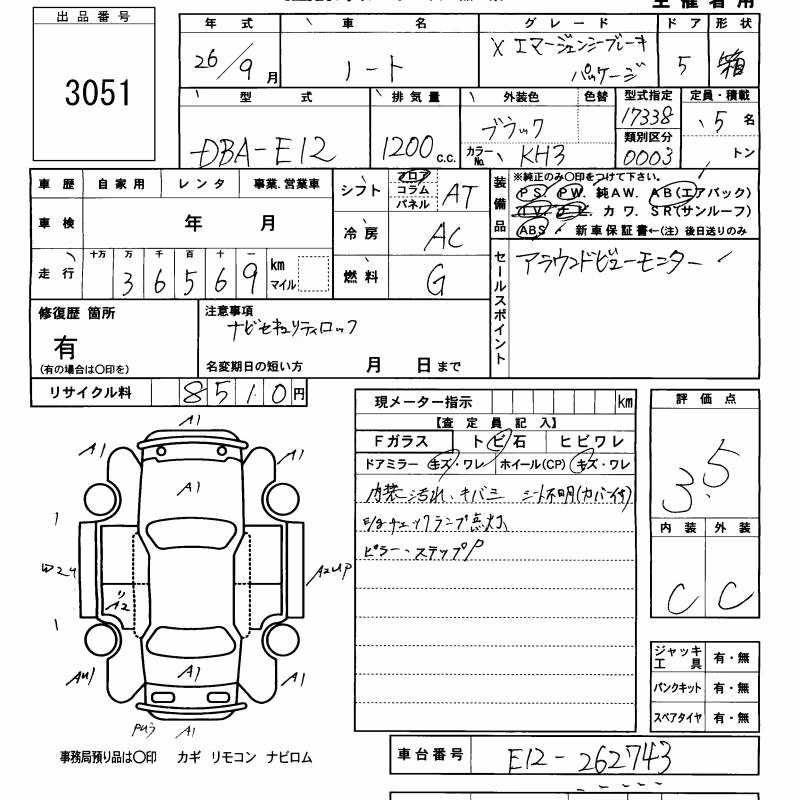 主催者用
出品番号
3051
年式 車名 グレード ドア 形状
26/9月 ノート X エマージェンシーブレーキ
パッケージ 5 箱
型式 排気量 外装色 色替 型式指定 定員・積載
DBA-E12 1200 c.c. ブラック 17338 5名
カラーNo. KH3 類別区分 0003 トン
車歴 自家用 レンタ 事業.営業車
車検 年 月
走行 十万 万 千 百 十 一
36569 km マイル
シフト フロア コラム パネル AT
冷房 AC
燃料 G
装備品 ※純正のみ○印をつけて下さい。
PS PW. 純AW. AB(エアバック)
TV ナビ カワ. SR(サンルーフ)
ABS 新車保証書←(注) 後日送りのみ
セールスポイント アラウンドビューモニター
修復歴 箇所
有
(有の場合は○印を)
注意事項
ナビセキュリティロック
名変期日の短い方 月 日まで
リサイクル料 8510円
現メーター指示 km
【査定員記入】
Fガラス トビ石 ヒビワレ
ドアミラー キズ・ワレ ホイール(CP) キズ・ワレ
内装汚れ、キバミ シート不明(カバー付)
チェックランプ点灯
ピラー、ステップP
評価点
3.5
内装 外装
C C
ジャッキ工具 有・無
パンクキット 有・無
スペアタイヤ 有・無
A1
A1 A1
A1
1 1
W2U A2UP
A2
1
AU1 A1 A1
PU3 A1
事務局預り品は○印 カギ リモコン ナビロム
車台番号 E12-262743